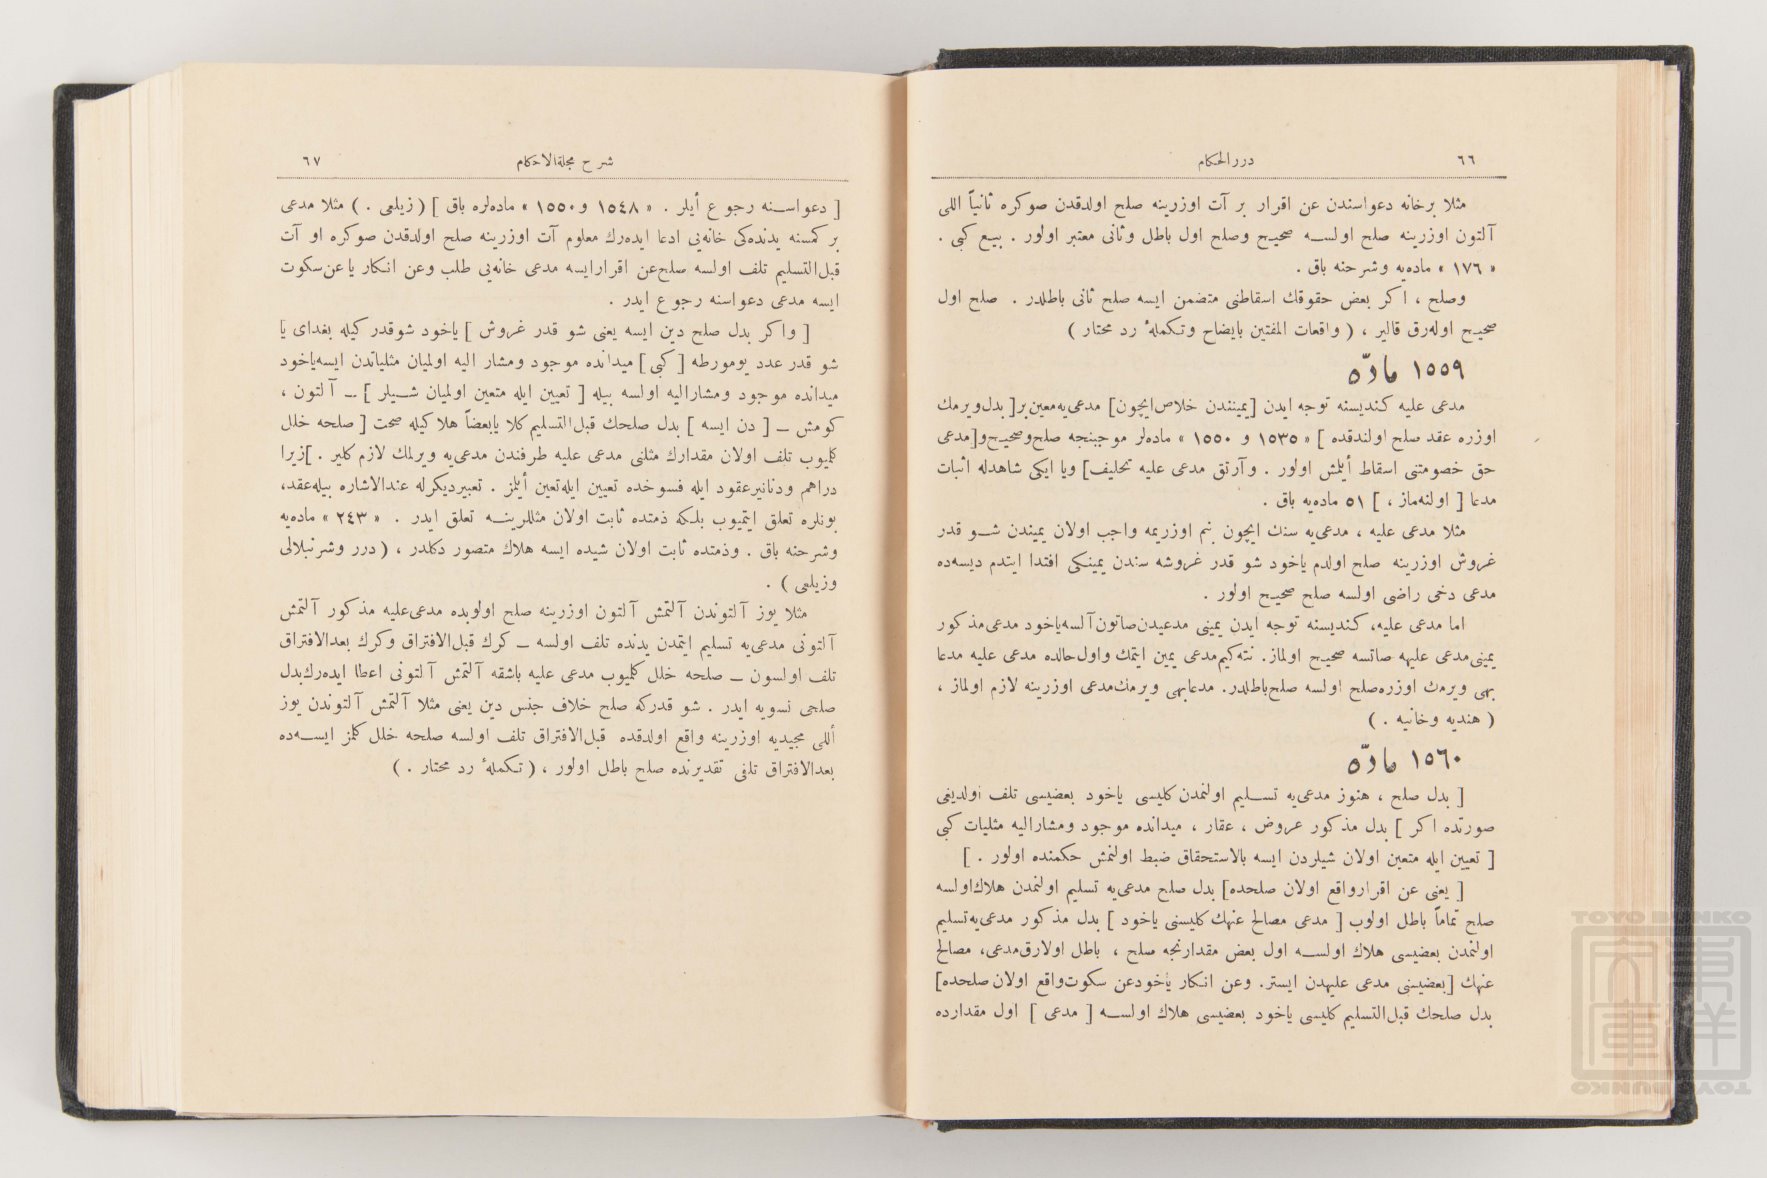 ٦٦
درر الحکام
مثلا بر خانه دعواسندن عن اقرار بر آت اوزرینه صلح اولدقدن صوکره ثانیاً اللی
آلتون اوزرینه صلح اولسه صحیح وصلح اول باطل وثانی معتبر اولور . بیع کبی .
« ١٧٦ » ماده‌یه وشرحنه باق .
وصلح ، اکر بعض حقوقك اسقاطنی متضمن ایسه صلح ثانی باطلدر . صلح اول
صحیح اوله‌رق قالیر ، ( واقعات المفتین بایضاح وتکملهٔ رد محتار )
١٥٥٩ مادّه
مدعی علیه کندیسنه توجه ایدن [یمینندن خلاص ایچون] مدعی‌یه معین بر [ بدل ویرمك
اوزره عقد صلح اولندقده ] « ١٥٣٥ و ١٥٥٠ » ماده‌لر موجبنجه صلح وصحیح و[مدعی
حق خصومتنی اسقاط أیلمش اولور . وآرتق مدعی علیه تحلیف] ویا ایکی شاهدله اثبات
مدعا [ اولنه‌ماز ، ] ٥١ ماده‌یه باق .
مثلا مدعی علیه ، مدعی‌یه سنك ایچون بنم اوزریمه واجب اولان یمیندن شو قدر
غروش اوزرینه صلح اولدم یاخود شو قدر غروشه سندن یمینکی افتدا ایتدم دیسه‌ده
مدعی دخی راضی اولسه صلح صحیح اولور .
اما مدعی علیه، کندیسنه توجه ایدن یمینی مدعیدن صاتون آلسه یاخود مدعی مذکور
یمینی مدعی علیهه صاتسه صحیح اولماز. نته‌کیم مدعی یمین ایتمك واول حالده مدعی علیه مدعا
بهی ویرمك اوزره صلح اولسه صلح باطلدر. مدعابهی ویرمك مدعی اوزرینه لازم اولماز ،
( هندیه وخانیه . )
١٥٦٠ مادّه
[ بدل صلح ، هنوز مدعی‌یه تسلیم اولنمدن کلیسی یاخود بعضیسی تلف اولدیغی
صورتده اکر ] بدل مذکور عروض ، عقار ، میدانده موجود ومشارالیه مثلیات کبی
[ تعیین ایله متعین اولان شیلردن ایسه بالاستحقاق ضبط اولنمش حکمنده اولور . ]
[ یعنی عن اقرار واقع اولان صلحده] بدل صلح مدعی‌یه تسلیم اولنمدن هلاك اولسه
صلح تماماً باطل اولوب [ مدعی مصالح عنهك کلیسنی یاخود ] بدل مذکور مدعی‌یه تسلیم
اولنمدن بعضیسی هلاك اولسه اول بعض مقدارنجه صلح ، باطل اولارق مدعی، مصالح
عنهك [بعضیسنی مدعی علیهدن ایستر. وعن انکار یاخود عن سکوت واقع اولان صلحده]
بدل صلحك قبل‌التسلیم کلیسی یاخود بعضیسی هلاك اولسه [ مدعی ] اول مقدارده
شرح مجلة‌الاحکام
٦٧
[ دعواسنه رجوع أیلر . « ١٥٤٨ و ١٥٥٠ » ماده‌لره باق ] ( زیلعی . ) مثلا مدعی
بر کمسنه یدنده‌کی خانه‌یی ادعا ایده‌رك معلوم آت اوزرینه صلح اولدقدن صوکره او آت
قبل‌التسلیم تلف اولسه صلح عن اقرار ایسه مدعی خانه‌یی طلب وعن انکار یا عن سکوت
ایسه مدعی دعواسنه رجوع ایدر .
[ واکر بدل صلح دین ایسه یعنی شو قدر غروش ] یاخود شوقدر کیله بغدای یا
شو قدر عدد یومورطه [ کبی ] میدانده موجود ومشار الیه اولمیان مثلیاتدن ایسه یاخود
میدانده موجود ومشارالیه اولسه بیله [ تعیین ایله متعین اولمیان شیلر ] ــ آلتون ،
کومش ــ [ دن ایسه ] بدل صلحك قبل‌التسلیم کلا یابعضاً هلاکیله صحت [ صلحه خلل
کلمیوب تلف اولان مقدارك مثلنی مدعی علیه طرفندن مدعی‌یه ویرلمك لازم کلیر . ] زیرا
دراهم ودنانیر عقود ایله فسوخده تعیین ایله تعین أیلمز . تعبیر دیکرله عندالاشاره بیله عقد،
بونلره تعلق ایتمیوب بلکه ذمتده ثابت اولان مثللرینه تعلق ایدر . « ٢٤٣ » ماده‌یه
وشرحنه باق . وذمتده ثابت اولان شیده ایسه هلاك متصور دکلدر ، ( درر وشرنبلالی
وزیلعی ) .
مثلا یوز آلتوندن آلتمش آلتون اوزرینه صلح اولوبده مدعی علیه مذکور آلتمش
آلتونی مدعی‌یه تسلیم ایتمدن یدنده تلف اولسه ــ کرك قبل‌الافتراق وکرك بعدالافتراق
تلف اولسون ــ صلحه خلل کلمیوب مدعی علیه باشقه آلتمش آلتونی اعطا ایده‌رك بدل
صلحی تسویه ایدر . شو قدرکه صلح خلاف جنس دین یعنی مثلا آلتمش آلتوندن یوز
أللی مجیدیه اوزرینه واقع اولدقده قبل‌الافتراق تلف اولسه صلحه خلل کلمز ایسه‌ده
بعدالافتراق تلفی تقدیرنده صلح باطل اولور ، ( تکملهٔ رد محتار . )
TOYO BUNKO
東洋文庫
TOYO BUNKO